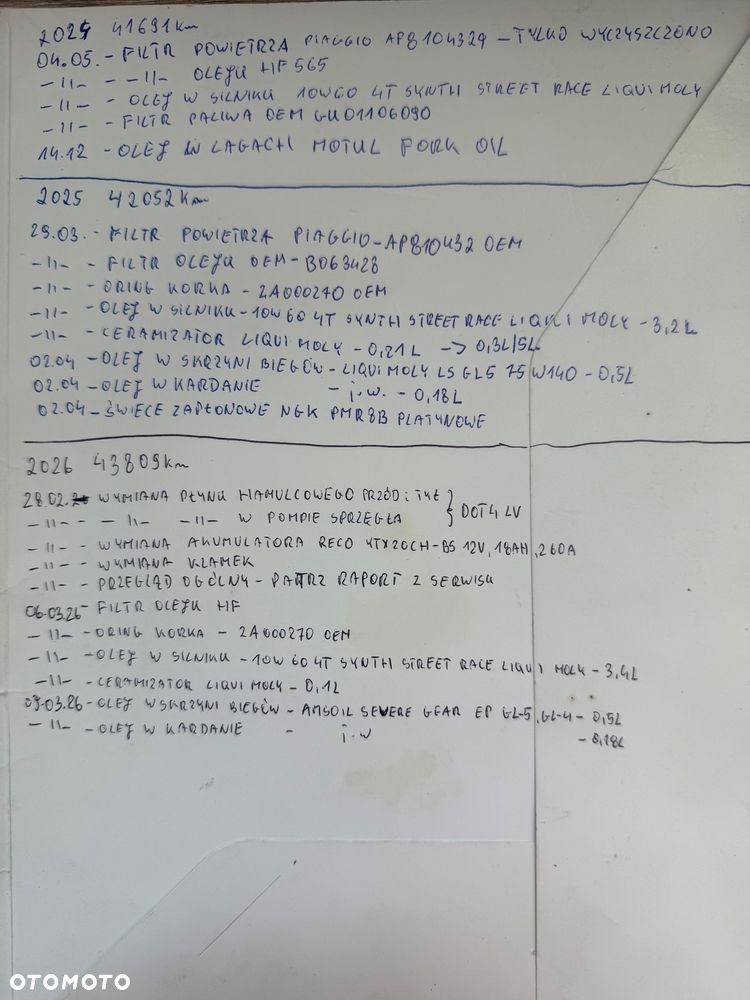 2024 41691km
04.05. - FILTR POWIETRZA PIAGGIO AP8104329 - TYLKO WYCZYSZCZONO
-II- - -II- OLEJU HF565
-II- - OLEJ W SILNIKU 10W60 4T SYNTH STREET RACE LIQUI MOLY
-II- - FILTR PALIWA OEM GU01106090
14.12 - OLEJ W LAGACH MOTUL FORK OIL
2025 42052km
29.03. - FILTR POWIETRZA PIAGGIO-AP810432 OEM
-II- - FILTR OLEJU OEM - B063428
-II- - ORING KORKA - 2A000270 OEM
-II- - OLEJ W SILNIKU - 10W60 4T SYNTH STREET RACE LIQUI MOLY - 3,2L
-II- - CERAMIZATOR LIQUI MOLY - 0,21L -> 0,3L/5L
02.04 - OLEJ W SKRZYNI BIEGÓW - LIQUI MOLY LS GL5 75W140 - 0,5L
02.04 - OLEJ W KARDANIE - j.w. - 0,18L
02.04 - ŚWIECE ZAPŁONOWE NGK PMR8B PLATYNOWE
2026 43809km
28.02.26 WYMIANA PŁYNU HAMULCOWEGO PRZÓD i TYŁ } DOT4 LV
-II- - -II- -II- W POMPIE SPRZĘGŁA
-II- - WYMIANA AKUMULATORA RECO YTX20CH-BS 12V, 18AH, 260A
-II- - WYMIANA KLAMEK
-II- - PRZEGLĄD OGÓLNY - PATRZ RAPORT Z SERWISU
06.03.26 - FILTR OLEJU HF
-II- - ORING KORKA - 2A000270 OEM
-II- - OLEJ W SILNIKU - 10W60 4T SYNTH STREET RACE LIQUI MOLY - 3,4L
-II- - CERAMIZATOR LIQUI MOLY - 0,1L
09.03.26 - OLEJ W SKRZYNI BIEGÓW - AMSOIL SEVERE GEAR EP GL-5, GL-4 - 0,5L
-II- - OLEJ W KARDANIE - j.w - 0,18L
OTOMOTO